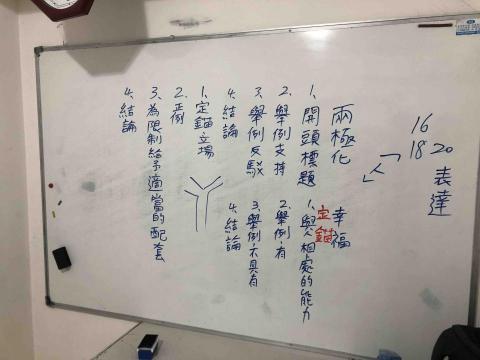 16
18 20
表達
兩極化
1、開頭標題
2、舉例支持
3、舉例反駁
4、結論
幸福
定錨
1、與人相處的能力
2、舉例有
3、舉例不具有
4、結論
1、定錨立場
2、正例
3、為限制給予適當的配套
4、結論